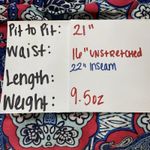 Pit to Pit: 21"
Waist: 16" UNSTRETCHED
Length: 22" Inseam
Weight: 9.5oz